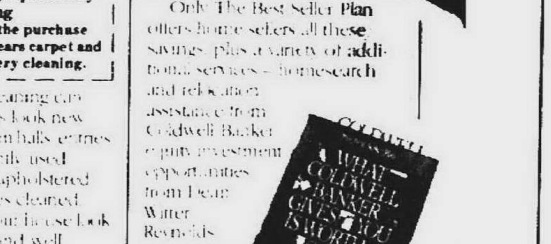 ng
the purchase
ears carpet and
ery cleaning.
eaning can
s look new
n halls, entries
ily used
upholstered
s cleaned
our house look
nd well
Only The Best Seller Plan
offers home sellers all these
savings, plus a variety of addi-
tional services – homesearch
and relocation
assistance from
Coldwell Banker
equity investment
opportunities
from Dean
Witter
Reynolds
COLDWELL
WHAT
COLDWELL
BANKER
GIVES YOU
IS WORTH